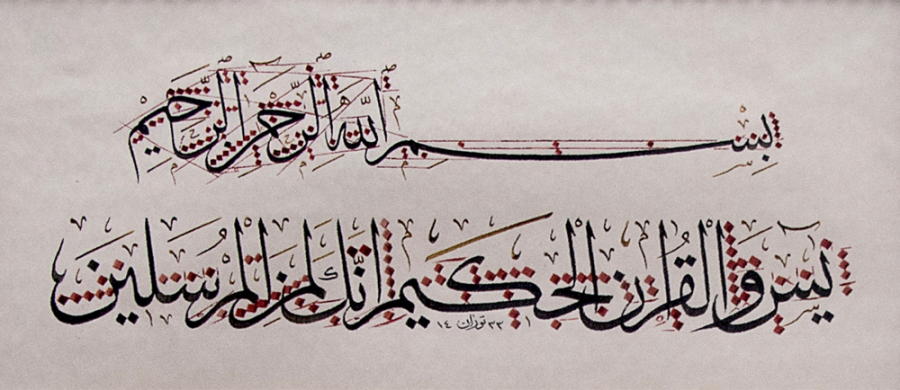 بسم الله الرحمن الرحيم
يس والقرآن الحكيم إنك لمن المرسلين